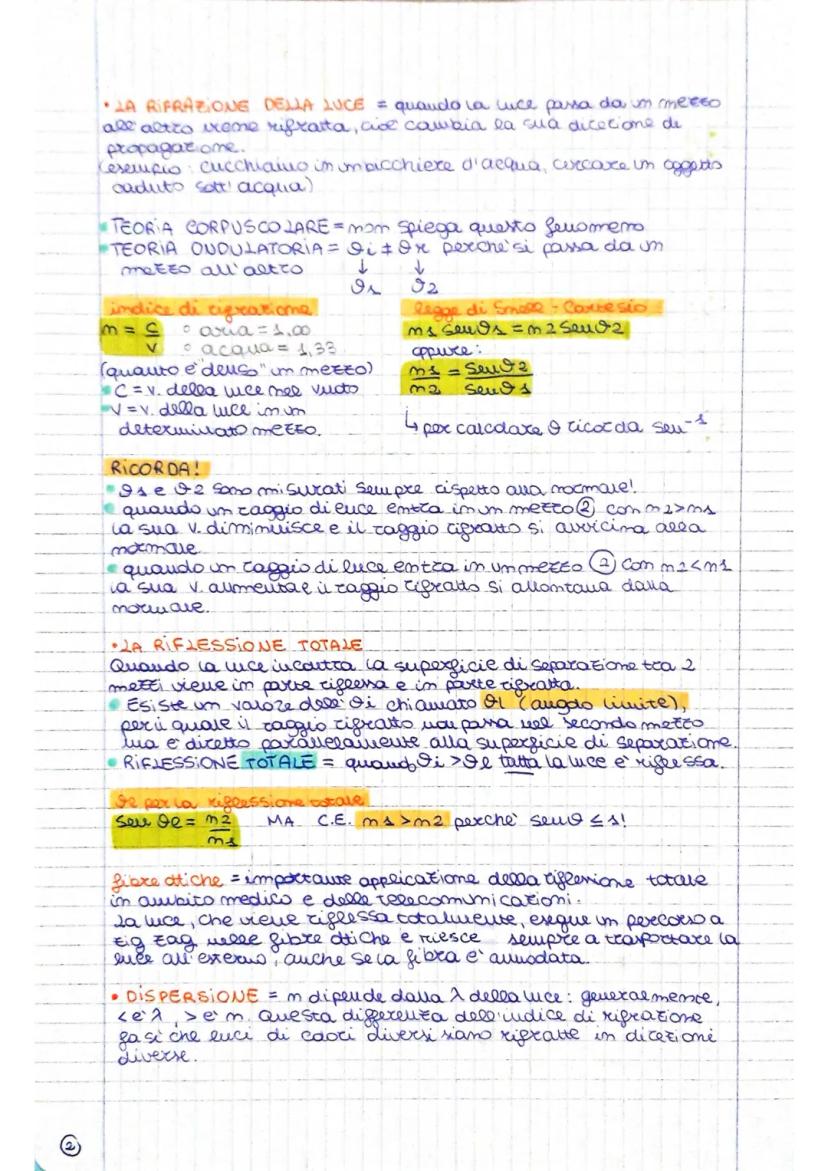 • LA RIFRAZIONE DELLA LUCE = quando la luce passa da un mezzo
all'altro viene rifratta, cioè cambia la sua direzione di
propagazione.
(esempio: cucchiaino in un bicchiere d'acqua, cercare un oggetto
caduto sott'acqua)
TEORIA CORPUSCOLARE = non spiega questo fenomeno
TEORIA ONDULATORIA = θi ≠ θr perché si passa da un
mezzo all'altro ↓ ↓
θ1 θ2
indice di rifrazione
n = c/v ° aria = 1,00
° acqua = 1,33
(quanto è "denso" un mezzo)
• C = v. della luce nel vuoto
• V = v. della luce in un
determinato mezzo.
legge di Snell - Cartesio
n1 senθ1 = n2 senθ2
oppure:
n1/n2 = senθ2/senθ1
↳ per calcolare θ ricorda sen⁻¹
RICORDA!
• θ1 e θ2 sono misurati sempre rispetto alla normale!
• quando un raggio di luce entra in un mezzo ② con n2>n1
la sua v. diminuisce e il raggio rifratto si avvicina alla
normale.
• quando un raggio di luce entra in un mezzo ② con n2<n1
la sua v. aumenta e il raggio rifratto si allontana dalla
normale.
• LA RIFLESSIONE TOTALE
Quando la luce incontra la superficie di separazione tra 2
mezzi viene in parte riflessa e in parte rifratta.
• Esiste un valore dell' θi chiamato θl (angolo limite),
per il quale il raggio rifratto non passa nel secondo mezzo
ma è diretto parallelamente alla superficie di separazione.
• RIFLESSIONE TOTALE = quando θi > θl tutta la luce è riflessa.
θl per la riflessione totale
sen θl = n2/n1 MA C.E. n1>n2 perché senθ ≤ 1!
fibre ottiche = importante applicazione della riflessione totale
in ambito medico e delle telecomunicazioni.
La luce, che viene riflessa totalmente, esegue un percorso a
zig zag nelle fibre ottiche e riesce sempre a trasportare la
luce all'esterno, anche se la fibra è annodata.
• DISPERSIONE = n dipende dalla λ della luce: generalmente,
< è λ, > è n. Questa differenza dell'indice di rifrazione
fa sì che luci di colori diversi siano rifratte in direzioni
diverse.
②